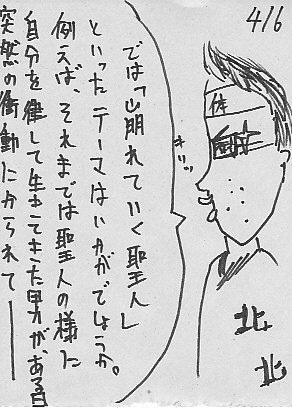 4/6
では「崩れていく聖人」
といったテーマはいかがでしょうか。
例えば、それまでは聖人の様に
自分を律して生きてきた男がある日
突然の衝動にかられて――
キリッ
北
北